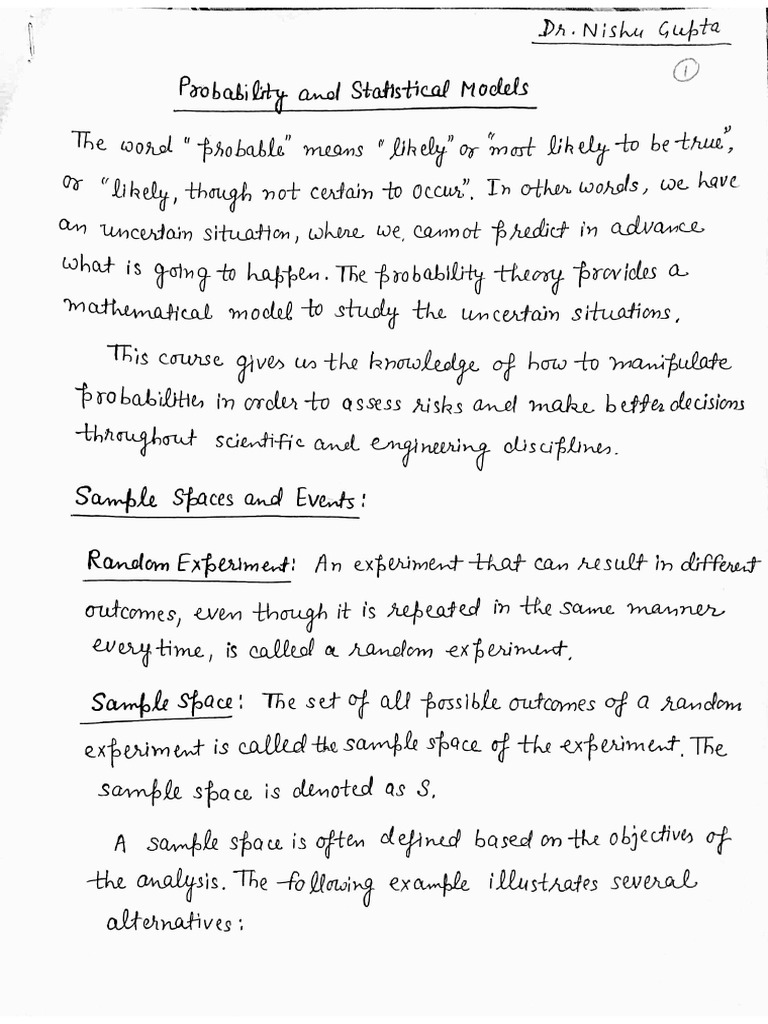 Dr. Nishu Gupta
1
Probability and Statistical Models
The word "probable" means "likely" or "most likely to be true",
or "likely, though not certain to occur". In other words, we have
an uncertain situation, where we, cannot predict in advance
what is going to happen. The probability theory provides a
mathematical model to study the uncertain situations.
This course gives us the knowledge of how to manipulate
probabilities in order to assess risks and make better decisions
throughout scientific and engineering disciplines.
Sample Spaces and Events:
Random Experiment: An experiment that can result in different
outcomes, even though it is repeated in the same manner
everytime, is called a random experiment.
Sample Space: The set of all possible outcomes of a random
experiment is called the sample space of the experiment. The
sample space is denoted as S.
A sample space is often defined based on the objectives of
the analysis. The following example illustrates several
alternatives: